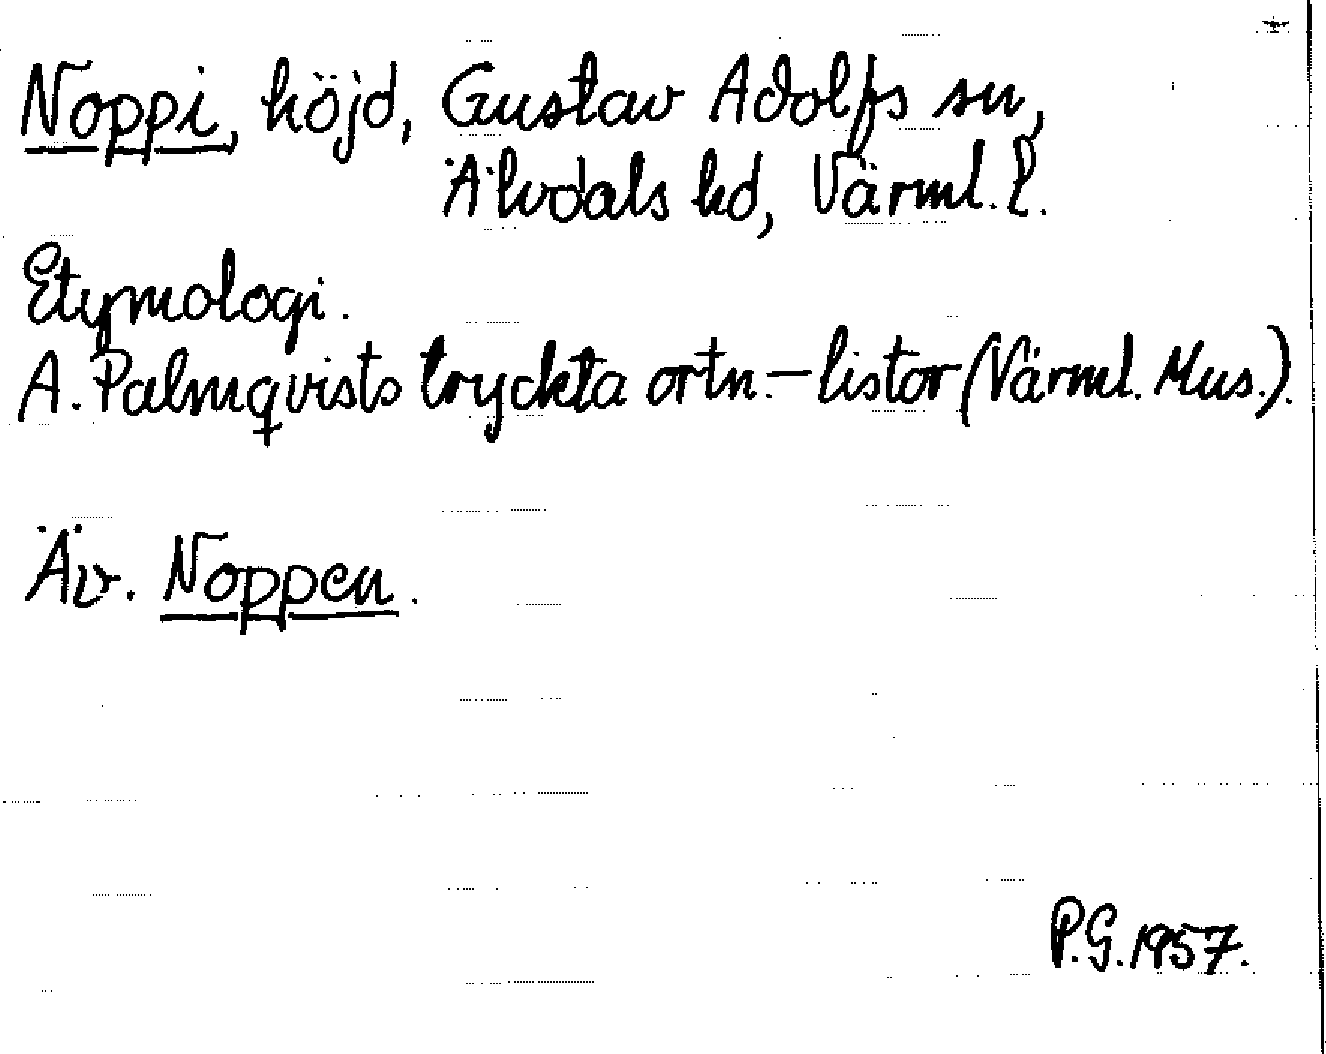 Noppi, höjd, Gustav Adolfs sn,
Älvdals hd, Värml. l.
Etymologi.
A. Palmqvists tryckta ortn.-listor (Värml. Mus.).
Äv. Noppen.
P.G. 1957.